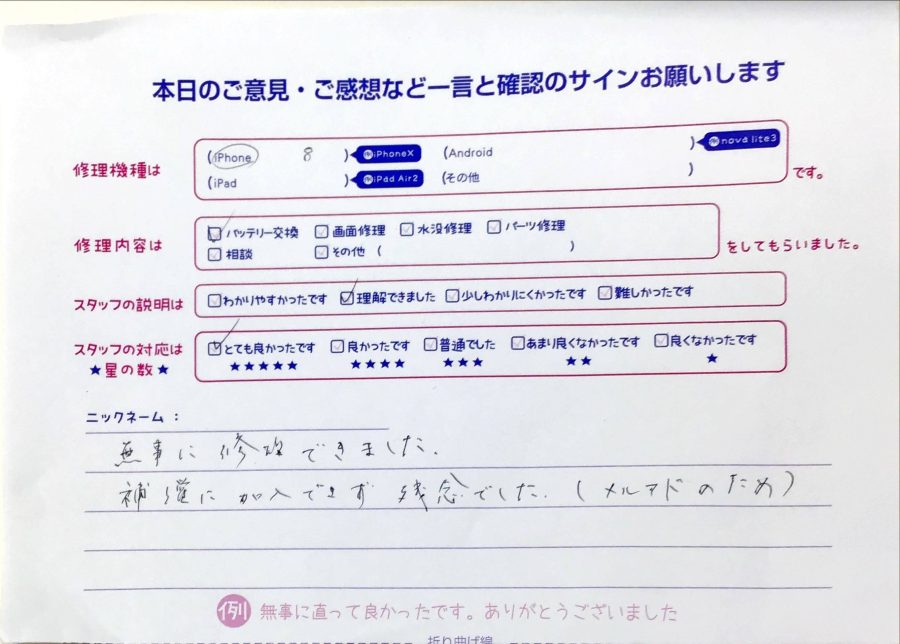 本日のご意見・ご感想など一言と確認のサインお願いします
修理機種は
(iPhone 8 ) 例iPhoneX (Android ) 例nova lite3
(iPad ) 例iPad Air2 (その他 )
です。
修理内容は
バッテリー交換 画面修理 水没修理 パーツ修理
相談 その他 ( )
をしてもらいました。
スタッフの説明は
わかりやすかったです 理解できました 少しわかりにくかったです 難しかったです
スタッフの対応は
★星の数★
とても良かったです 良かったです 普通でした あまり良くなかったです 良くなかったです
★★★★★ ★★★★ ★★★ ★★ ★
ニックネーム：
無事に修理できました.
補償に加入できず残念でした.(メルアドのため)
例 無事に直って良かったです。ありがとうございました
折り曲げ線